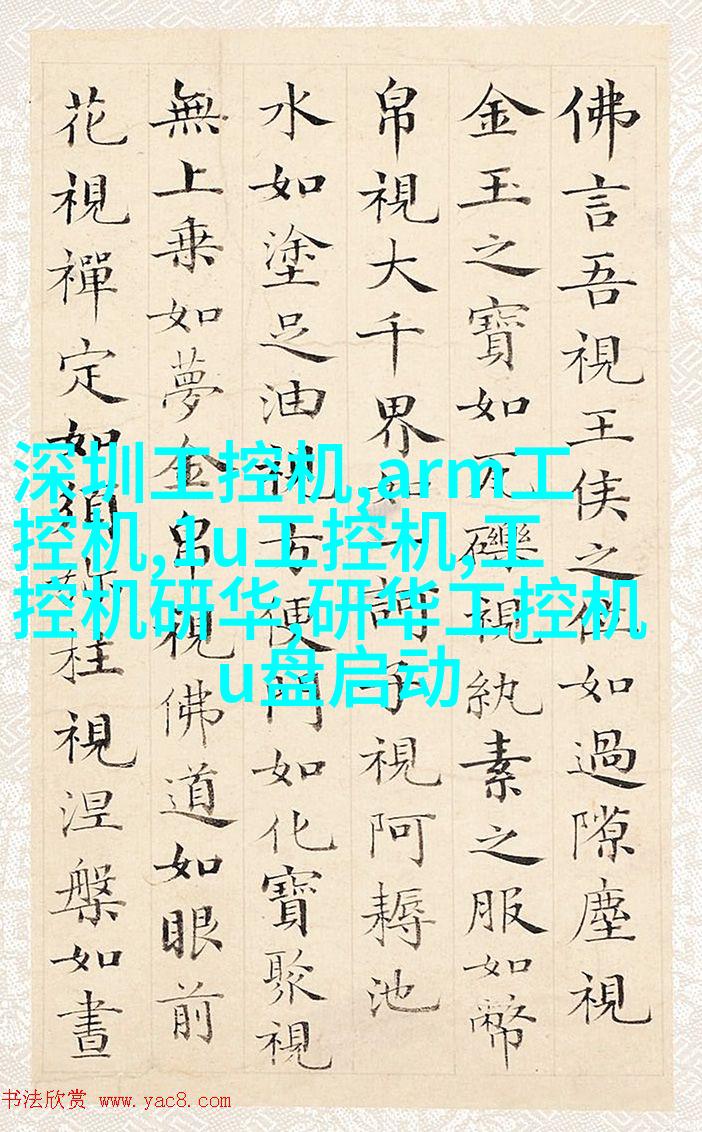 佛言吾視王侯之位如過隙塵視
金玉之寶如瓦礫視紈素之服如幣
帛視大千界如一訶子視阿耨池
水如塗足油視方便門如化寶聚視
無上乗如夢金帛視佛道如眼前
花視禪定如須彌柱視涅槃如晝
深圳工控机,arm工
控机,1u工控机,工
控机研华,研华工控机
u盘启动
书法欣赏 www.yac8.com